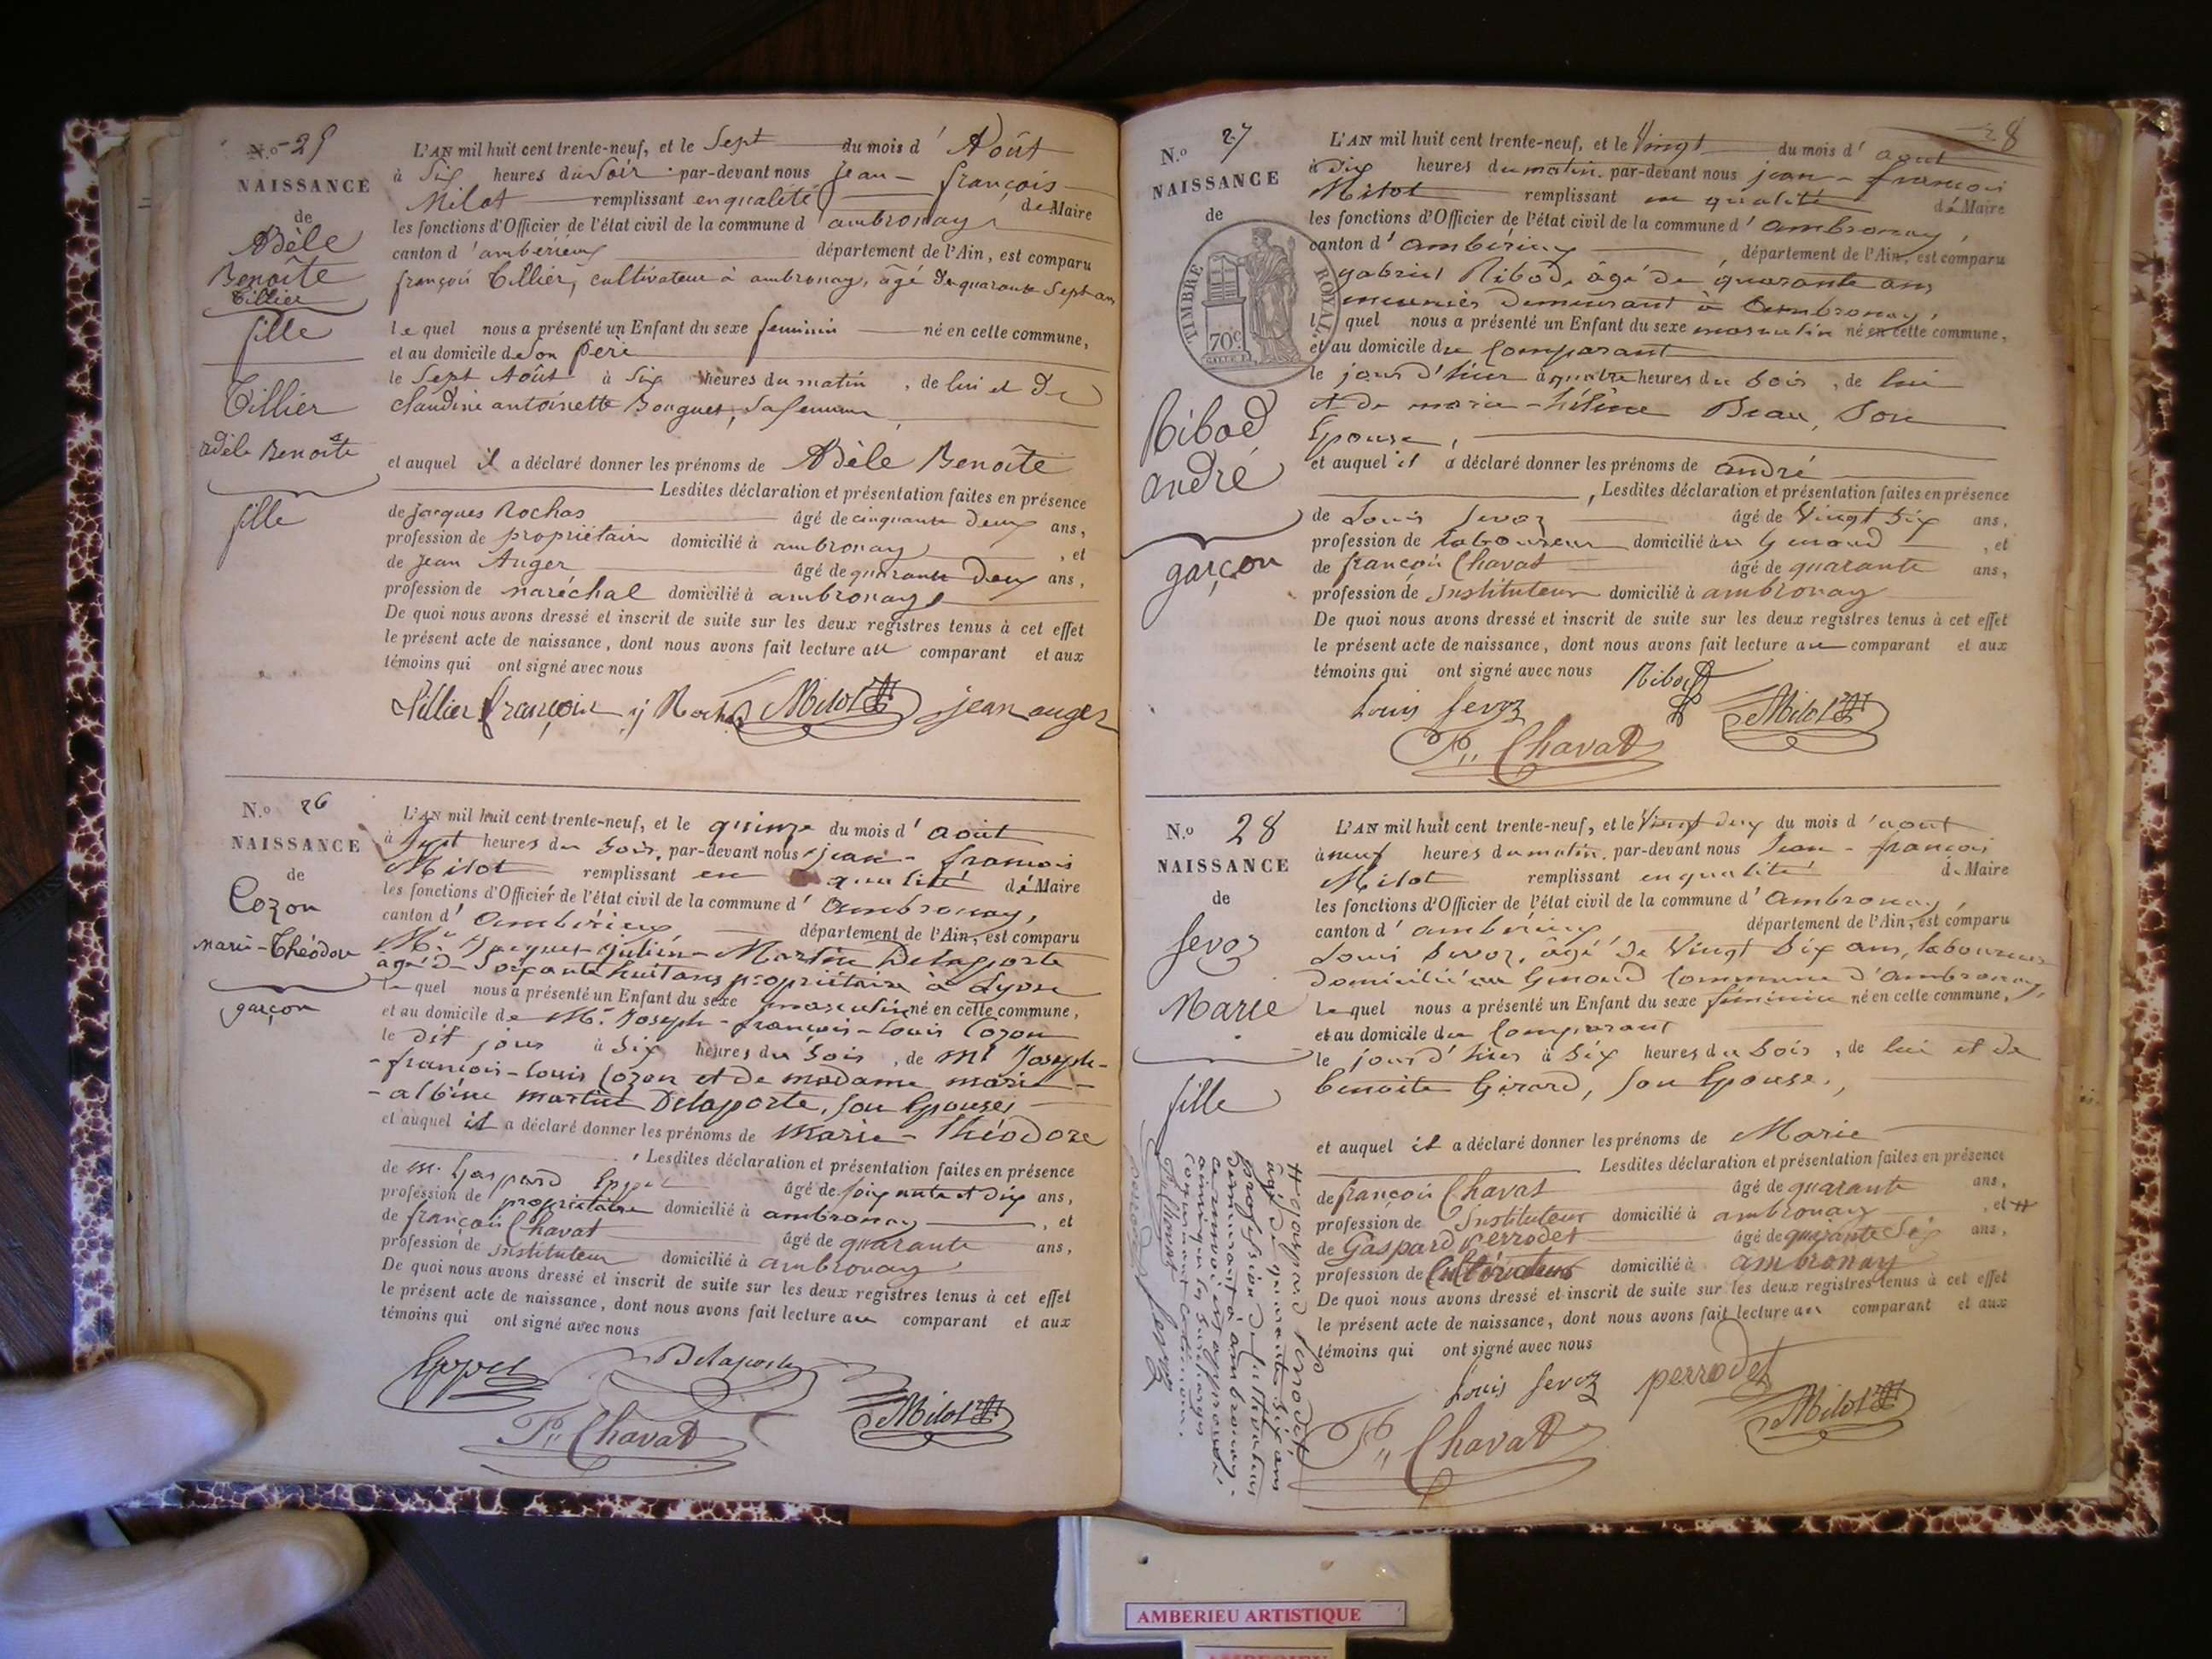 N.o 25
NAISSANCE
de
Adèle
Benoîte
Tillier
fille
Tillier
adèle Benoîte
fille
L'AN mil huit cent trente-neuf, et le Sept du mois d' Août
à Six heures du Soir par-devant nous Jean-françois
Milot remplissant en qualité de Maire
les fonctions d'Officier de l'état civil de la commune d'ambronay
canton d'ambérieux département de l'Ain, est comparu
françois Tillier, cultivateur à ambronay, âgé de quarante Sept ans
lequel nous a présenté un Enfant du sexe feminin né en cette commune,
et au domicile de Son père
le Sept Août à Six heures du matin, de lui et de
claudine antoinette Bouguet, Sa femme
et auquel il a déclaré donner les prénoms de Adèle Benoîte
Lesdites déclaration et présentation faites en présence
de Jacques Rochas âgé de cinquante deux ans,
profession de propriétaire domicilié à ambronay, et
de Jean Auger âgé de quarante Deux ans,
profession de maréchal domicilié à ambronay
De quoi nous avons dressé et inscrit de suite sur les deux registres tenus à cet effet
le présent acte de naissance, dont nous avons fait lecture au comparant et aux
témoins qui ont signé avec nous
Tillier françois j Rochas Milot jean auger
N.o 26
NAISSANCE
de
Cozon
marie-Théodore
garçon
L'AN mil huit cent trente-neuf, et le quinze du mois d'août
à Sept heures du Soir, par-devant nous jean-françois
Milot remplissant en qualité de Maire
les fonctions d'Officier de l'état civil de la commune d'Ambronay,
canton d'Ambérieux, département de l'Ain, est comparu
Mr. Jacques-Julien-Martin Delaporte
âgé de Soixante huit ans propriétaire à Lyon
lequel nous a présenté un Enfant du sexe masculin né en cette commune,
et au domicile de Mr. Joseph-françois-louis Cozon
le dit jour à Six heures du Soir, de Mr Joseph-
-françois-louis Cozon et de madame marie-
-albine martin Delaporte, son Epouse,
et auquel il a déclaré donner les prénoms de Marie-Théodore
, Lesdites déclaration et présentation faites en présence
de m. Gaspard âgé de soixante et dix ans,
profession de propriétaire domicilié à ambronay, et
de françois Chavat âgé de quarante ans,
profession de instituteur domicilié à ambronay,
De quoi nous avons dressé et inscrit de suite sur les deux registres tenus à cet effet
le présent acte de naissance, dont nous avons fait lecture au comparant et aux
témoins qui ont signé avec nous
Delaporte
F,, Chavat Milot
28
N.o 27
NAISSANCE
de
TIMBRE ROYAL
70c
Ribod
andré
garçon
L'AN mil huit cent trente-neuf, et le Vingt du mois d'août
à Dix heures du matin, par-devant nous jean-françois
Milot remplissant en qualité de Maire
les fonctions d'Officier de l'état civil de la commune d'Ambronay,
canton d'Ambérieux, département de l'Ain, est comparu
gabriel Ribod, âgé de quarante ans
meunier demeurant à Ambronay,
lequel nous a présenté un Enfant du sexe masculin né en cette commune,
et au domicile du Comparant
le jour d'hier à quatre heures du Soir, de lui
et de marie-hélène Beau, Son
Epouse,
et auquel il a déclaré donner les prénoms de andré
, Lesdites déclaration et présentation faites en présence
de Louis Sevoz âgé de Vingt Six ans,
profession de laboureur domicilié au Genoud, et
de françois Chavat âgé de quarante ans,
profession de Instituteur domicilié à ambronay
De quoi nous avons dressé et inscrit de suite sur les deux registres tenus à cet effet
le présent acte de naissance, dont nous avons fait lecture au comparant et aux
témoins qui ont signé avec nous Ribod
Louis Sevoz Milot
F,, Chavat
N.o 28
NAISSANCE
de
Sevoz
Marie
fille
L'AN mil huit cent trente-neuf, et le Vingt deux du mois d'aout
à neuf heures du matin, par-devant nous Jean-françois
Milot remplissant en qualité de Maire
les fonctions d'Officier de l'état civil de la commune d'Ambronay,
canton d'ambérieux département de l'Ain, est comparu
Louis Sevoz, âgé de Vingt Six ans, laboureur
domicilié au Genoud Commune d'Ambronay,
lequel nous a présenté un Enfant du sexe féminin né en cette commune,
et au domicile du Comparant
le jour d'hier à Six heures du Soir, de lui et de
benoite Girard, son Epouse,
et auquel il a déclaré donner les prénoms de Marie
Lesdites déclaration et présentation faites en présence
de françois Chavat âgé de quarante ans,
profession de Instituteur domicilié à ambronay, et #
de Gaspard perrodet âgé de quarante Six ans,
profession de Cultivateur domicilié à ambronay
De quoi nous avons dressé et inscrit de suite sur les deux registres tenus à cet effet
le présent acte de naissance, dont nous avons fait lecture au comparant et aux
témoins qui ont signé avec nous
Louis Sevoz perrodet
F,, Chavat Milot
# gaspard perrodet
âgé de quarante six ans
profession de Cultivateur
demeurant à ambronay.
ce renvoi est approuvé,
AMBERIEU ARTISTIQUE